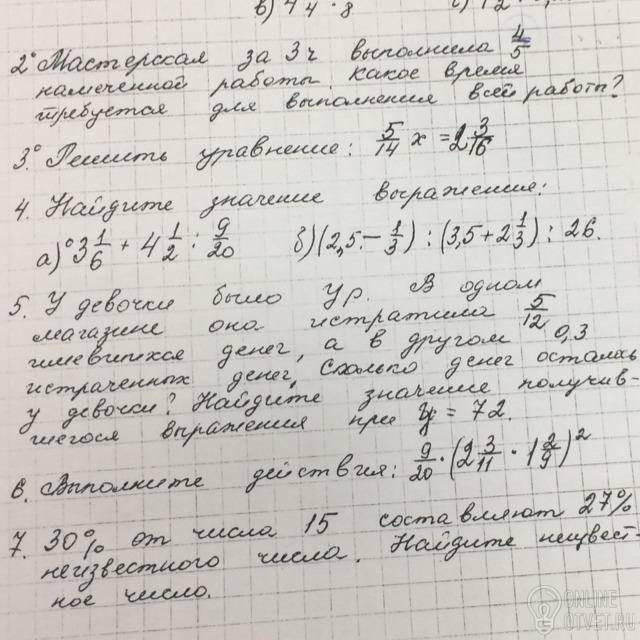 в) 44 · 8
2° Мастерская за 3 ч выполнила 4/5
намеченной работы. Какое время
требуется для выполнения всей работы?
3.° Решить уравнение: 5/14 x = 2 3/16
4. Найдите значение выражения:
а)° 3 1/6 + 4 1/2 : 9/20 б) (2,5 - 1/3) : (3,5 + 2 1/3) : 26.
5. У девочки было y р. В одном
магазине она истратила 5/12
имевшихся денег, а в другом 0,3
истраченных денег, сколько денег осталось
у девочки? Найдите значение получив-
шегося выражения при y = 72.
6. Выполните действия: 9/20 · (2 3/11 · 1 2/9)²
7. 30% от числа 15 составляют 27%
неизвестного числа. Найдите неизвест-
ное число.
ONLINE
OTVET.RU